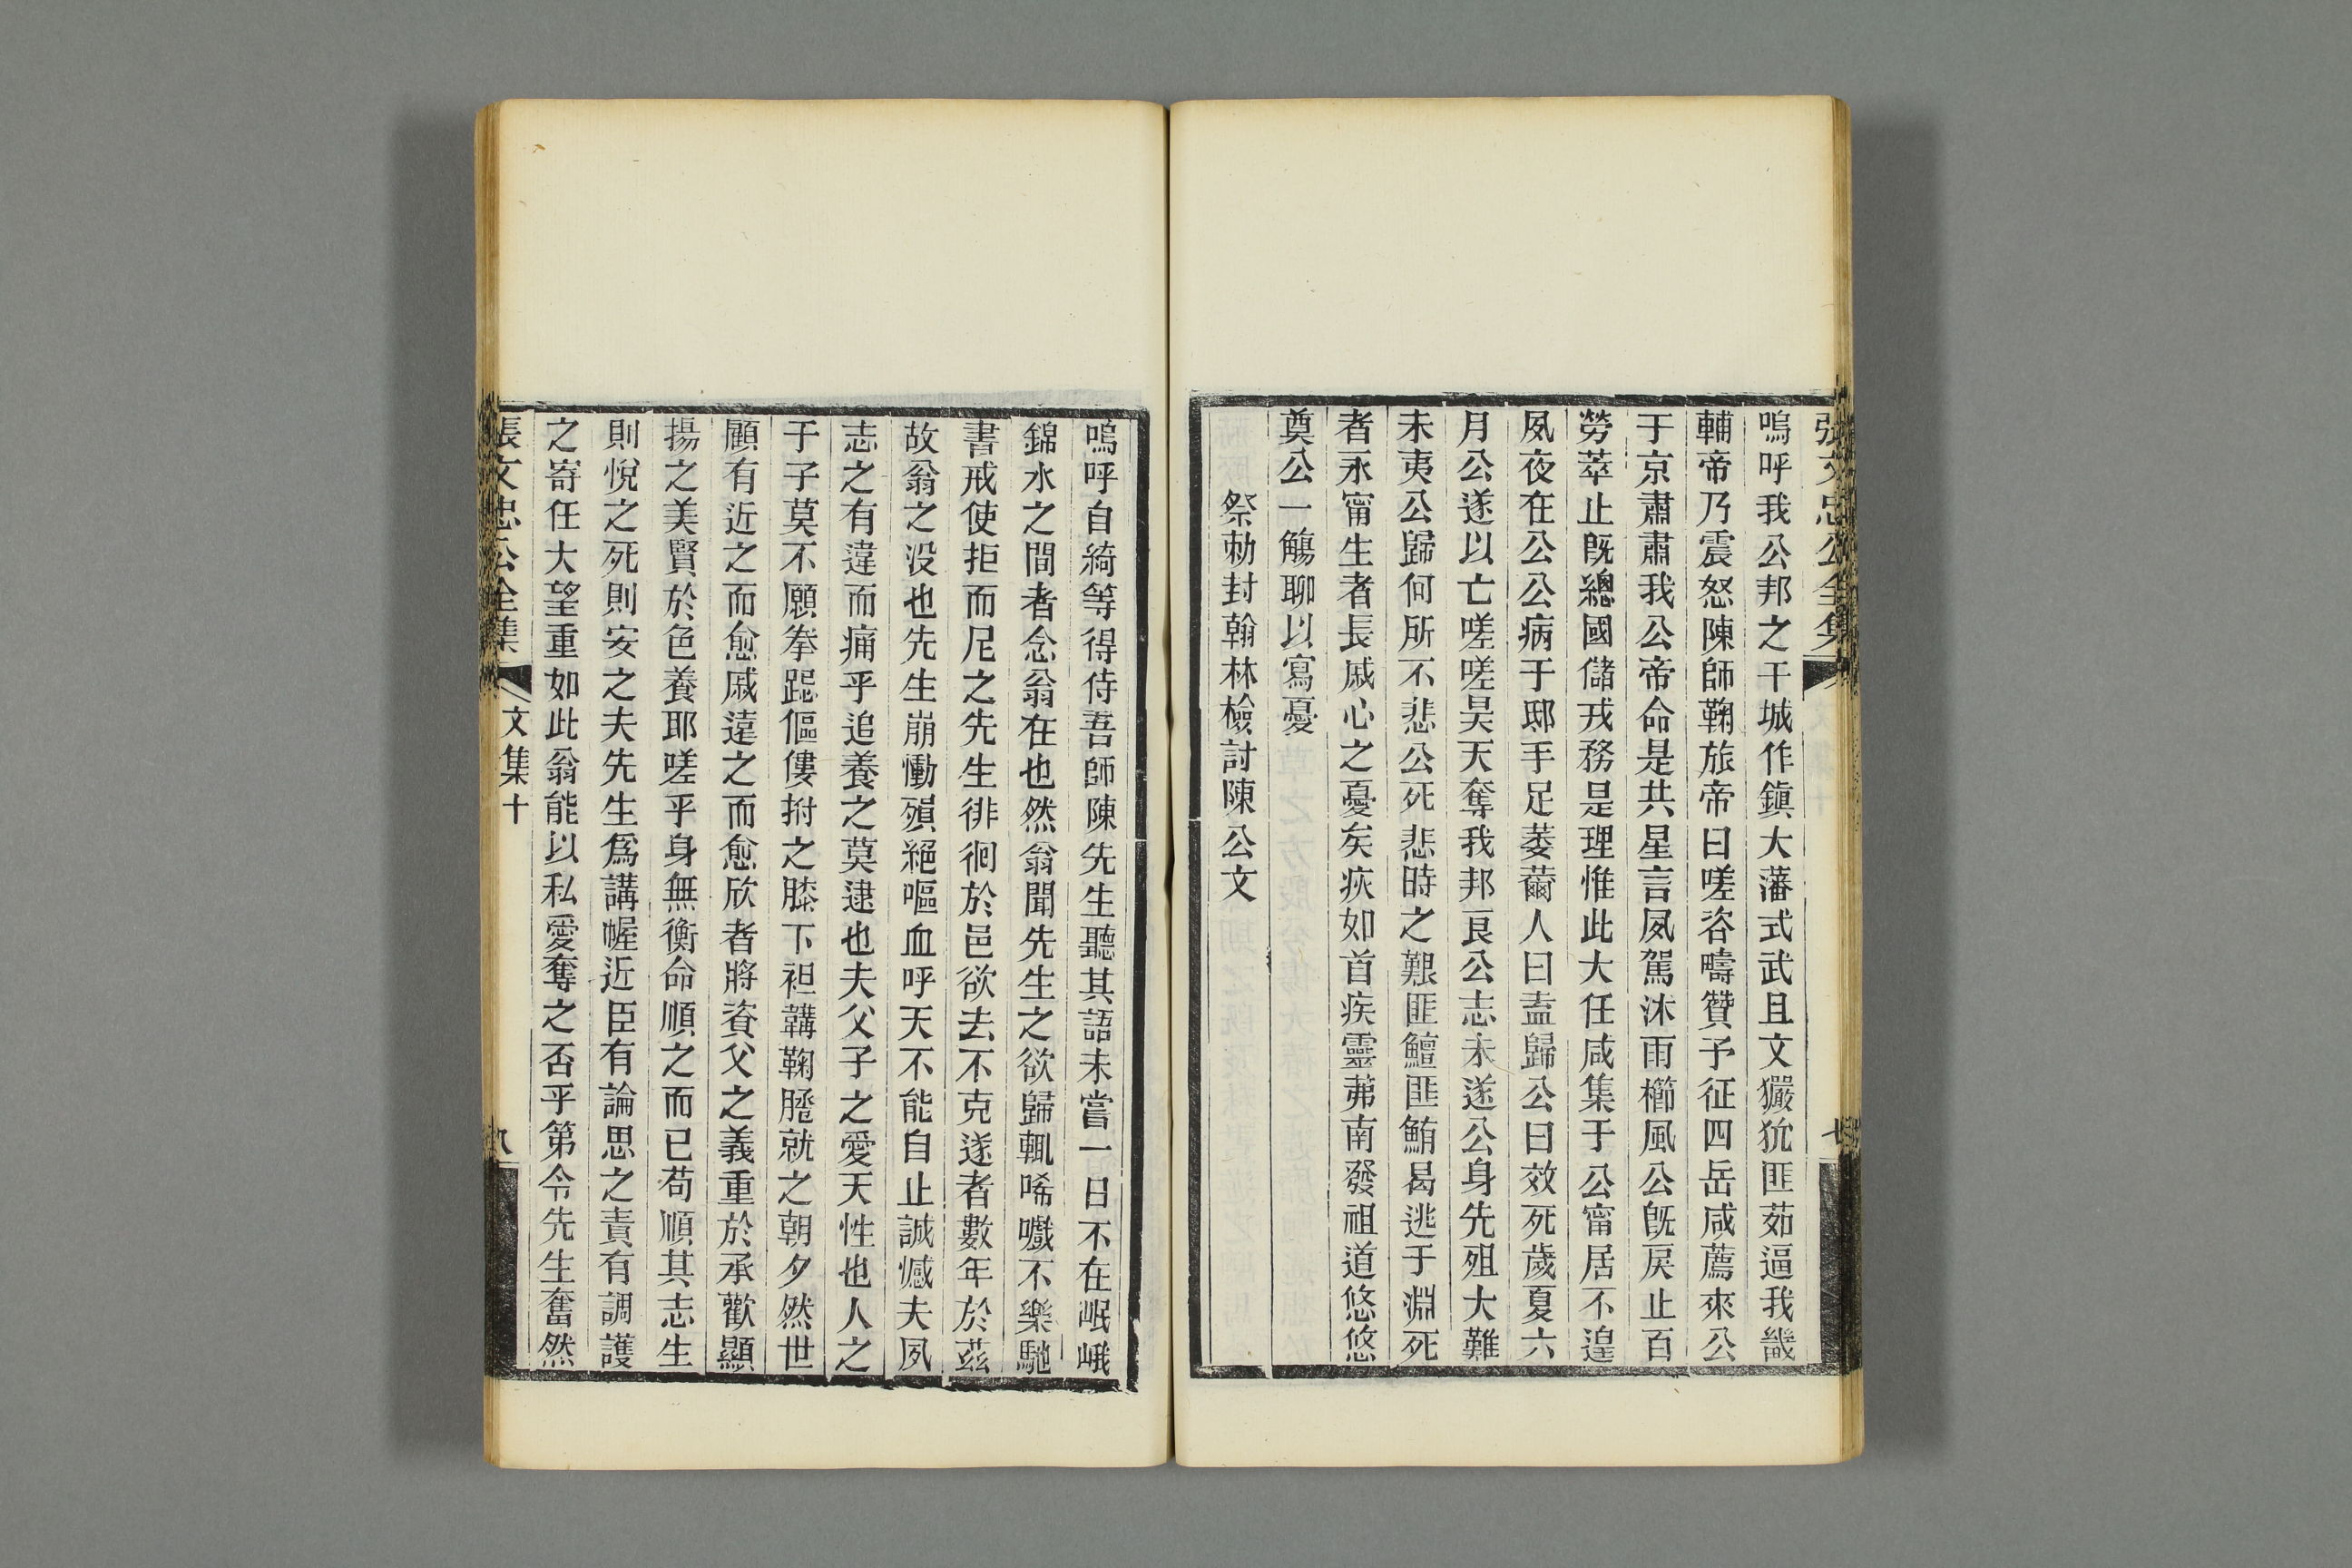 張文忠公全集
七
嗚呼我公邦之干城作鎮大藩式武且文玁狁匪茹逼我畿
輔帝乃震怒陳師鞠旅帝曰嗟咨疇贊予征四岳咸薦來公
于京肅肅我公帝命是共星言夙駕沐雨櫛風公旣戾止百
勞萃止旣總國儲戎務是理惟此大任咸集于公甯居不遑
夙夜在公公病于邸手足萎薾人曰盍歸公曰效死歲夏六
月公遂以亡嗟嗟昊天奪我邦良公志未遂公身先殂大難
未夷公歸何所不悲公死悲時之艱匪鱣匪鮪曷逃于淵死
者永甯生者長戚心之憂矣疢如首疾靈茀南發祖道悠悠
奠公一觴聊以寫憂
祭勅封翰林檢討陳公文
嗚呼自綺等得侍吾師陳先生聽其語未嘗一日不在岷峨
錦水之間者念翁在也然翁聞先生之欲歸輒唏嚱不樂馳
書戒使拒而尼之先生徘徊於邑欲去不克遂者數年於茲
故翁之没也先生崩慟殞絕嘔血呼天不能自止誠憾夫夙
志之有違而痛乎追養之莫逮也夫父子之愛天性也人之
于子莫不願拳跽傴僂拊之膝下袒韝鞠䠆就之朝夕然世
顧有近之而愈戚違之而愈欣者將資父之義重於承歡顯
揚之美賢於色養耶嗟乎身無衡命順之而已苟順其志生
則悅之死則安之夫先生爲講幄近臣有論思之責有調護
之寄任大望重如此翁能以私愛奪之否乎第令先生奮然
張文忠公全集
文集十
八